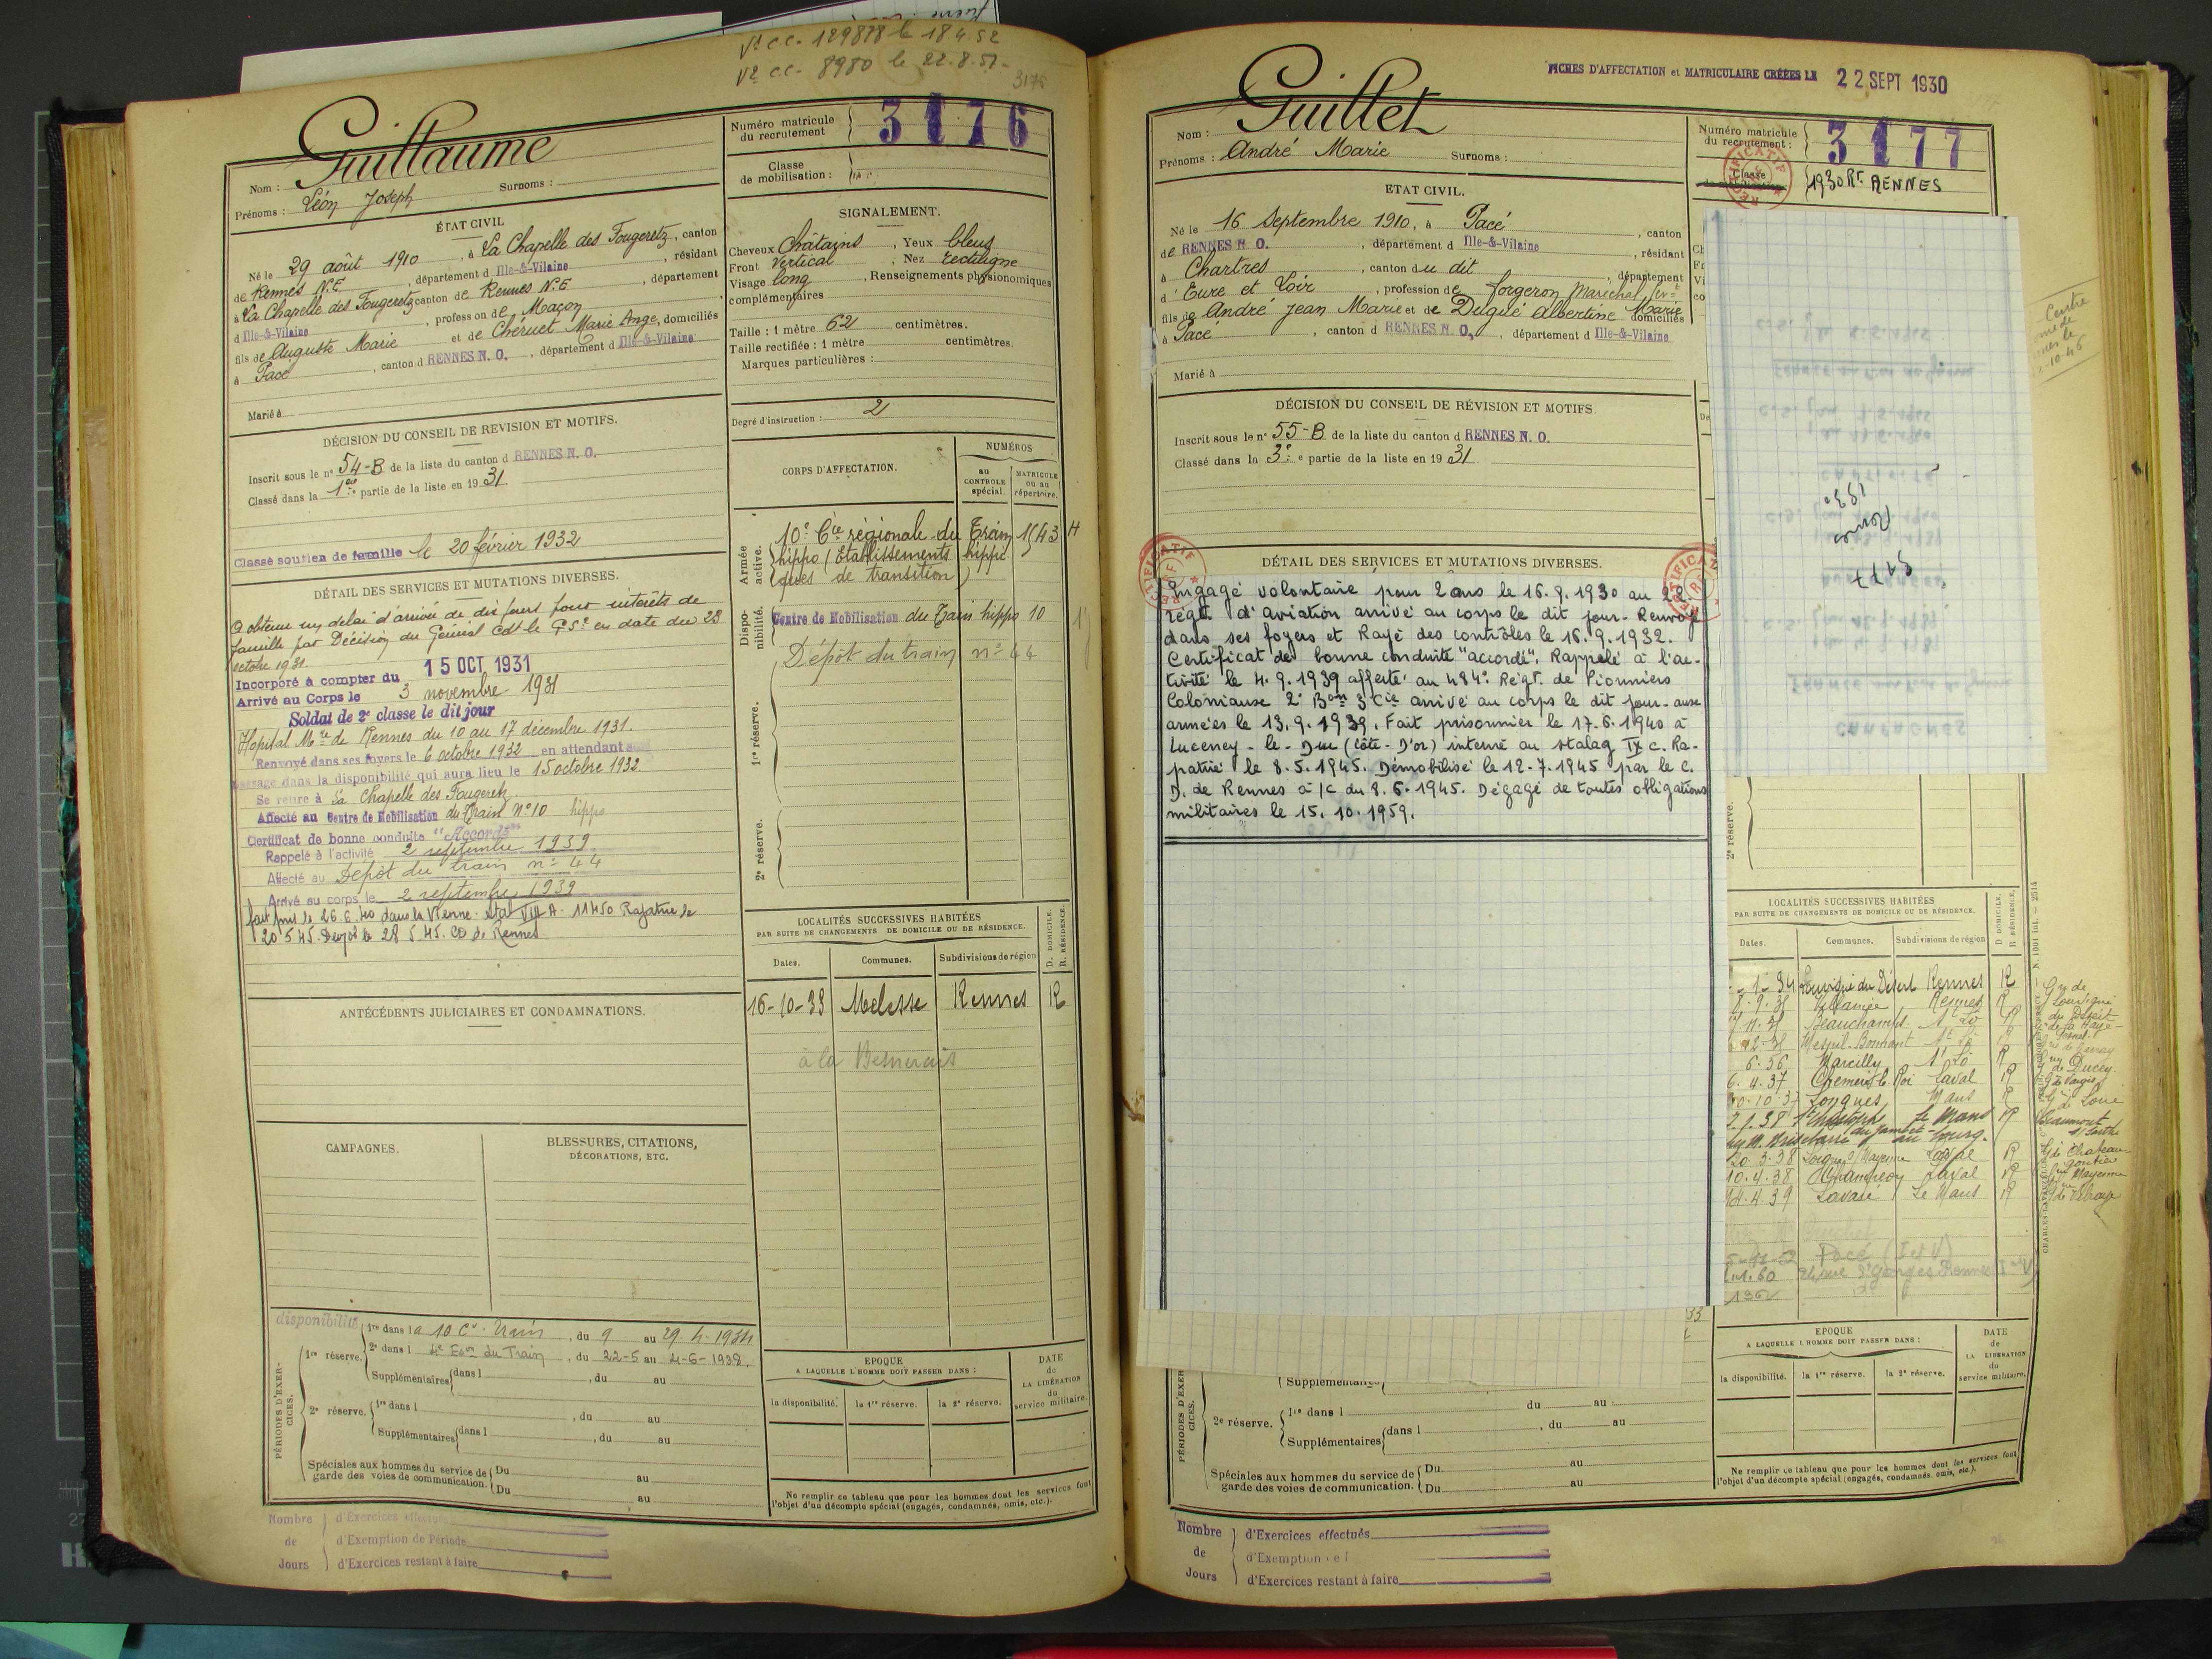 Vé C.C. 129878 le 18 4 52
Vé C.C. 8980 le 22.8.51
3176
Guillaume
Nom :
Prénoms : Léon Joseph Surnoms :
Numéro matricule du recrutement 3176
Classe de mobilisation :
ÉTAT CIVIL
Né le 29 août 1910, à La Chapelle des Fougeretz, canton
de Rennes N.E, département d Ille-&-Vilaine, résidant
à La Chapelle des Fougeretz canton de Rennes N.E, département
d Ille-&-Vilaine, profession de Maçon
fils de Auguste Marie et de Chéruet Marie Ange, domiciliés
à Pacé, canton d RENNES N. O., département d Ille-&-Vilaine
Marié à
DÉCISION DU CONSEIL DE REVISION ET MOTIFS.
Inscrit sous le n° 54-B de la liste du canton d RENNES N. O.
Classé dans la 1ère partie de la liste en 1931.
Classé soutien de famille le 20 février 1932
DÉTAIL DES SERVICES ET MUTATIONS DIVERSES.
A obtenu un délai d'arrivée de dix jours pour intérêts de
famille par Décision du Général Cdt le en date du 23
octobre 1931.
Incorporé à compter du 15 OCT 1931
Arrivé au Corps le 3 novembre 1931
Soldat de 2e classe le dit jour
Hôpital Mre de Rennes du 10 au 17 décembre 1931.
Renvoyé dans ses foyers le 6 octobre 1932 en attendant
passage dans la disponibilité qui aura lieu le 15 octobre 1932.
Se retire à La Chapelle des Fougeretz
Affecté au Centre de Mobilisation du Train N°10 hippo
Certificat de bonne conduite "Accordé"
Rappelé à l'activité 2 septembre 1939
Affecté au Dépôt du train n° 44
Arrivé au corps le 2 septembre 1939
fait pnier le 26.6.40 dans la Vienne. Stal VIII A. 11450 Rapatrié le
20 5 45. le 28.5.45. CD de Rennes
ANTÉCÉDENTS JUDICIAIRES ET CONDAMNATIONS.
CAMPAGNES.
BLESSURES, CITATIONS,
DÉCORATIONS, ETC.
disponibilité
PÉRIODES D'EXERCICES.
1re réserve.
1re dans la 10 Cie Train, du 9 au 29-4-1934
2e dans l 4e Eson du Train, du 22-5 au 4-6-1938.
Supplémentaires dans l , du au
2e réserve.
1re dans l , du au
Supplémentaires dans l , du au
Spéciales aux hommes du service de garde des voies de communication.
Du au
Du au
Nombre de Jours
d'Exercices effectués
d'Exemption de Période
d'Exercices restant à faire
SIGNALEMENT.
Cheveux Châtains, Yeux bleus
Front Vertical, Nez rectiligne
Visage long, Renseignements physionomiques
complémentaires
Taille : 1 mètre 62 centimètres.
Taille rectifiée : 1 mètre centimètres.
Marques particulières :
Degré d'instruction : 2
CORPS D'AFFECTATION.
NUMÉROS
AU CONTROLE spécial.
MATRICULE ou au répertoire.
Armée active.
10e Cie régionale du Train 1543 H
hippo (Etablissements hippi
ques de transition)
Disponibilité.
Centre de Mobilisation du Train hippo 10
Dépôt du train n° 44
1re réserve.
2e réserve.
LOCALITÉS SUCCESSIVES HABITÉES
PAR SUITE DE CHANGEMENTS DE DOMICILE OU DE RÉSIDENCE.
D. DOMICILE.
R. RÉSIDENCE.
Dates. Communes. Subdivisions de région
16-10-33 Melesse Rennes R
à la
EPOQUE
A LAQUELLE L'HOMME DOIT PASSER DANS :
la disponibilité. la 1re réserve. la 2e réserve.
DATE de LA LIBÉRATION du service militaire.
Ne remplir ce tableau que pour les hommes dont les services font
l'objet d'un décompte spécial (engagés, condamnés, omis, etc.).
FICHES D'AFFECTATION et MATRICULAIRE CRÉÉES LE 22 SEPT 1930
Guillet
Nom :
Prénoms : André Marie Surnoms :
Numéro matricule du recrutement : 3177
Classe de mobilisation 1930 Rt RENNES
RECTIFICATIF
ETAT CIVIL.
Né le 16 Septembre 1910, à Pacé, canton
de RENNES N. O., département d Ille-&-Vilaine, résidant
à Chartres, canton du dit, département
d'Eure et Loir, profession de forgeron Maréchal fer-t
fils de André Jean Marie et de Dugué Albertine Marie domiciliés
à Pacé, canton d RENNES N. O., département d Ille-&-Vilaine
Marié à
DÉCISION DU CONSEIL DE RÉVISION ET MOTIFS.
Inscrit sous le n° 55-B de la liste du canton d RENNES N. O.
Classé dans la 3e partie de la liste en 1931
DÉTAIL DES SERVICES ET MUTATIONS DIVERSES.
RECTIFICATIF
Engagé volontaire pour 2 ans le 16.9.1930 au 22e
régt. d'aviation arrivé au corps le dit jour. Renvoyé
dans ses foyers et Rayé des contrôles le 16.9.1932.
Certificat de bonne conduite "accordé". Rappelé à l'ac-
tivité le 4.9.1939 affecté au 484e Régt. de Pionniers
Coloniaux 2e Bon 3e Cie arrivé au corps le dit jour. aux
armées le 13.9.1939. Fait prisonnier le 17.6.1940 à
Luceney-le-Duc (Côte-D'or) interné au stalag IX c. Ra-
patrié le 8.5.1945. Démobilisé le 12.7.1945 par le C.
D. de Rennes à /c du 8.6.1945. Dégagé de toutes obligations
militaires le 15.10.1959.
3177
Rennes
1930
Centre
10-46
2e réserve.
LOCALITÉS SUCCESSIVES HABITÉES
PAR SUITE DE CHANGEMENTS DE DOMICILE OU DE RÉSIDENCE.
D DOMICILE.
R. RÉSIDENCE.
Dates. Communes. Subdivisions de région
1-34 Louvigné du Désert Rennes R
Villamée Rennes R
Beauchamps St Lô R
6.36 Marcilly St Lô R
6.4.37 Chemeré le Roi Laval R
10.37 Longnes Mans R
2.1.38 St Christophe du Jambet Le Mans R
au bourg.
20.3.38 Mayenne Laval R
10.4.38 Champéon Laval R
14.4.39 Lavaré Le Mans R
Pacé (I et V)
1.60 rue St Georges Rennes
1962
Gie de Louvigné du Désert
de Ducey
de Loué
Beaumont s/ Sarthe
de Chateau gontier
Mayenne
de Vibraye
PÉRIODES D'EXERCICES.
Supplémentaires
2e réserve.
1re dans l du au
Supplémentaires dans l , du au
Spéciales aux hommes du service de garde des voies de communication.
Du au
Du au
EPOQUE
A LAQUELLE L'HOMME DOIT PASSER DANS :
la disponibilité. la 1re réserve. la 2e réserve.
DATE de LA LIBÉRATION du service militaire.
Ne remplir ce tableau que pour les hommes dont les services font
l'objet d'un décompte spécial (engagés, condamnés, omis, etc.).
Nombre de Jours
d'Exercices effectués
d'Exemption
d'Exercices restant à faire